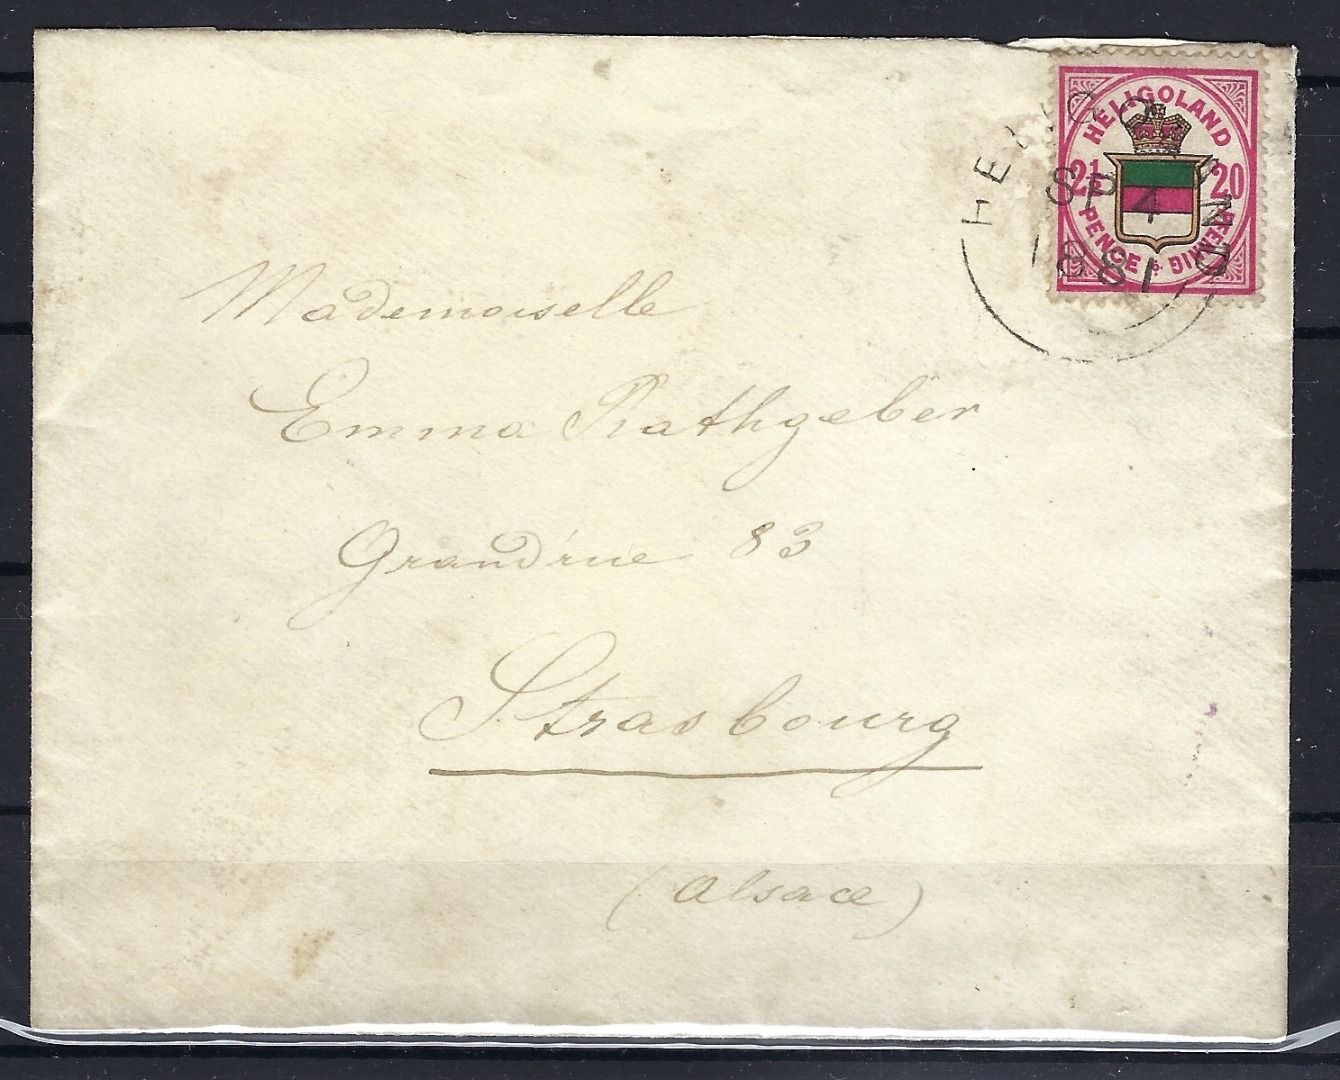 HELIGOLAND
2½ 20
PENCE PFENNIG
HELIGOLAND
SP 4
1881
Mademoiselle
Emma Rathgeber
Grand'rue 83
Strasbourg
(Alsace)